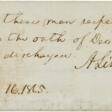 these men
the oath of Dec
discharged.
A. Li
16. 1865.